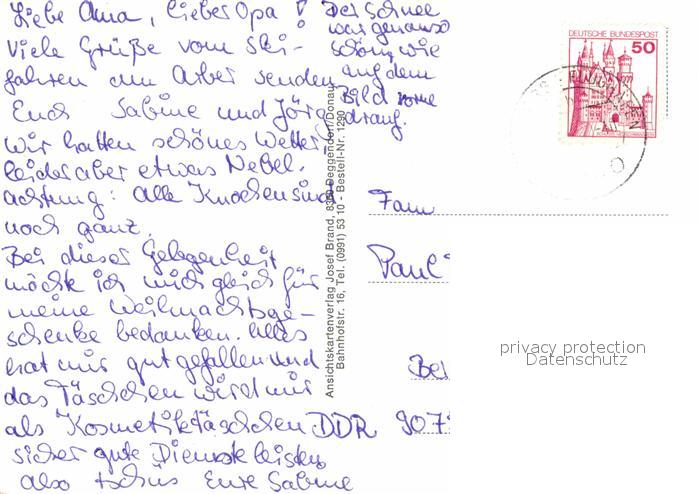 Liebe Oma, lieber Opa!
Viele Grüße vom Ski-
fahren am Arber senden
Euch Sabine und Jörg
wir hatten schönes Wetter,
leider aber etwas Nebel.
achtung: alle Knochen sind
noch ganz.
Bei dieser Gelegenheit
möchte ich mich gleich für
meine Weihnachtsge-
schenke bedanken. Alles
hat mir gut gefallen und
das Täschchen wird mir
als Kosmetiktäschchen
sicher gute Dienste leisten
also tschüs Eure Sabine
Der Schnee
war genauso
schön, wie
auf dem
Bild vorne
drauf.
Ansichtskartenverlag Josef Brand, 8360 Deggendorf/Donau
Bahnhofstr. 16, Tel. (0991) 53 10 - Bestell-Nr. 1290
DEUTSCHE BUNDESPOST
50
Fam
Paul
DDR 907
privacy protection
Datenschutz